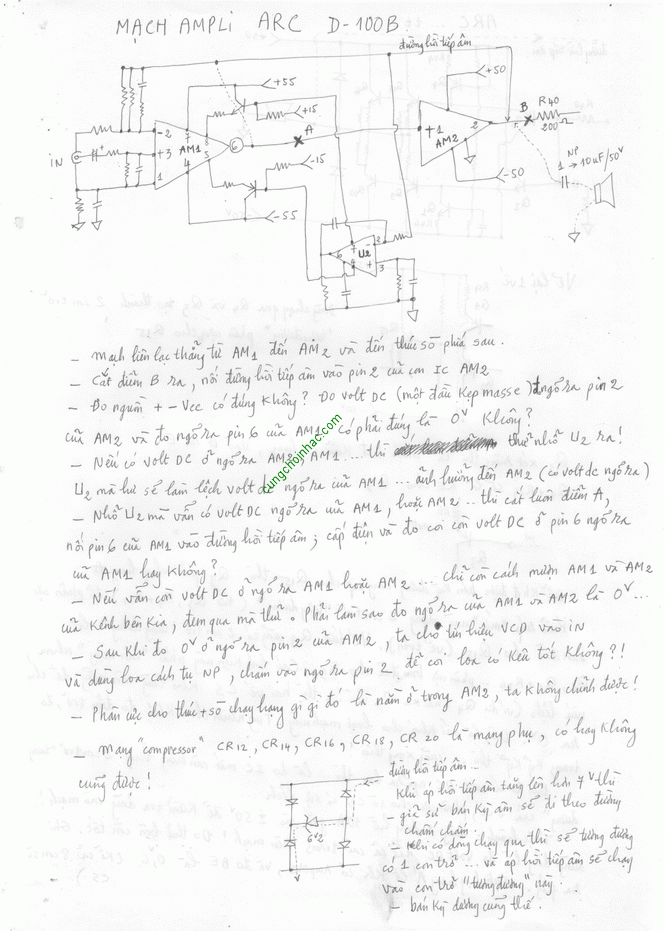 MẠCH AMPLI ARC D-100B
đường hồi tiếp âm
+55
+50
+15
A
B
R40
200
IN
-2
+3
1
AM1
7
8
6
4
5
+1
AM2
2
-15
-50
NP
1 → 10uF/50V
-55
6
U2
2
3
_ Mạch liên lạc thẳng từ AM1 đến AM2 và đến thúc sò phía sau.
_ Cắt điểm B ra, nối đường hồi tiếp âm vào pin 2 của con IC AM2
_ Đo nguồn + - Vcc có đúng không? Đo volt DC (một đầu kẹp masse) ngõ ra pin 2
của AM2 và đo ngõ ra pin 6 của AM1 có phải đúng là 0V không?
_ Nếu có volt DC ở ngõ ra AM2, AM1 ... thì thử nhổ U2 ra!
U2 mà hư sẽ làm lệch volt dc ngõ ra của AM1 ... ảnh hưởng đến AM2 (có volt dc ngõ ra)
_ Nhổ U2 mà vẫn có volt DC ngõ ra của AM1, hoặc AM2 .. thì cắt luôn điểm A,
nối pin 6 của AM1 vào đường hồi tiếp âm; cấp điện và đo coi còn volt DC ở pin 6 ngõ ra
của AM1 hay không?
_ Nếu vẫn còn volt DC ở ngõ ra AM1 hoặc AM2 ... chỉ còn cách mượn AM1 và AM2
của kênh bên kia, đem qua mà thử. Phải làm sao đo ngõ ra của AM1 và AM2 là 0V ...
_ Sau khi đo 0V ở ngõ ra pin 2 của AM2, ta cho tín hiệu VCD vào IN
và dùng loa cách tụ NP, chấm vào ngõ ra pin 2 để coi loa có kêu tốt không?!
_ Phân cực cho thúc + sò chạy hạng gì gì đó là nằm ở trong AM2, ta không chỉnh được!
_ Mạng "compressor" CR12, CR14, CR16, CR18, CR20 là mạng phụ, có hay không
cũng được!
đường hồi tiếp âm
Khi áp hồi tiếp âm tăng lên hơn 7V thì
- giả sử bán kỳ âm sẽ đi theo đường
chấm chấm.
- Khi có dòng chạy qua thì sẽ tương đương
có 1 con trở ... và áp hồi tiếp âm sẽ chạy
vào con trở "tương đương" này.
- bán kỳ dương cũng thế.
6V2
cungchoinhac.com